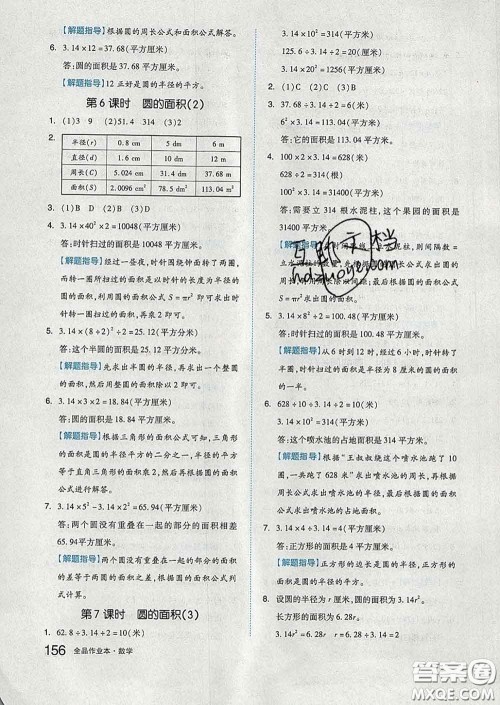 【解题指导】根据圆的周长公式和面积公式解答。
6. 3.14×12=37.68(平方厘米)
答:圆的面积是 37.68 平方厘米。
【解题指导】12 正好是圆的半径的平方。
第 6 课时 圆的面积(2)
1. (1)3 9 (2)51.4 314 (3)2
2. 半径(r) 0.8 cm 5 dm 6 m
直径(d) 1.6 cm 10 dm 12 m
周长(C) 5.024 cm 31.4 dm 37.68 m
面积(S) 2.0096 cm² 78.5 dm² 113.04 m²
3. (1)B (2)D
4. 3.14×40²×2=10048(平方厘米)
答:时针扫过的面积是 10048 平方厘米。
【解题指导】经过一昼夜,时针围绕钟面转了两圈,
而转一圈所扫过的面积是以时针的长度为半径的
圆的面积,利用圆的面积公式 S=πr² 即可求出时
针扫过的面积。
5. 3.14×(8÷2)²÷2=25.12(平方厘米)
答:这个半圆的面积是 25.12 平方厘米。
【解题指导】先求出半圆的半径,再求出一个整圆
的面积,然后用整圆的面积除以 2 即可。
6. 3.14×3×2=18.84(平方厘米)
答:圆的面积是 18.84 平方厘米。
【解题指导】根据三角形的面积公式可知,三角形
的面积是圆的半径的平方除以 2,圆的半径的平方
等于直角三角形的面积乘 2,然后再根据圆的面积
公式求出圆的面积即可。
7. 3.14×5²-3.14×2²=65.94(平方厘米)
答:两个圆没有重叠在一起的部分的面积相差
65.94 平方厘米。
【解题指导】两个圆没有重叠在一起的部分的面积
差等于两个圆的面积之差,根据圆的面积公式列式
计算。
第 7 课时 圆的面积(3)
1. 62.8÷3.14÷2=10(米)
156 全品作业本·数学
3.14×10²=314(平方米)
125.6÷3.14÷2=20(厘米)
3.14×20²=1256(平方厘米)
2. (1)C (2)B (3)C
3. 37.68÷3.14÷2=6(米)
3.14×6²=113.04(平方米)
答:它的面积是 113.04 平方米。
4. 100×2×3.14=628(米)
628÷2=314(根)
100²×3.14=31400(平方米)
答:需要立 314 根水泥柱,这个果园的面积是
31400 平方米。
互助文档
hdzuoye.com
5. 3.14×8²÷2=100.48(平方厘米)
答:时针扫过的面积是 100.48 平方厘米。
【解题指导】从 6 时到 12 时,经过 6 小时,时针转了
半圈,时针扫过的面积是半径为 8 厘米的圆的面积
的一半。
6. 628÷10÷3.14÷2=10(米)
3.14×10²=314(平方米)
答:这个喷水池的占地面积是 314 平方米。
【解题指导】根据“王叔叔绕这个喷水池跑了 10
圈,一共跑了 628 米”求出喷水池的周长,再根据圆
的周长公式求出喷水池的半径,最后根据圆的面积
公式求出喷水池的占地面积。
7. 3.14×4÷3.14=4(平方厘米)
答:正方形的面积是 4 平方厘米。
【解题指导】正方形的边长是圆的半径,正方形的面
积是半径的平方。
8. 设圆的半径为 r 厘米,圆的面积为 3.14r²。
长方形的面积为 6.28r 平方厘米。
3.14r²=6.28r 3.14r=6.28
答案圈
MXQE.COM